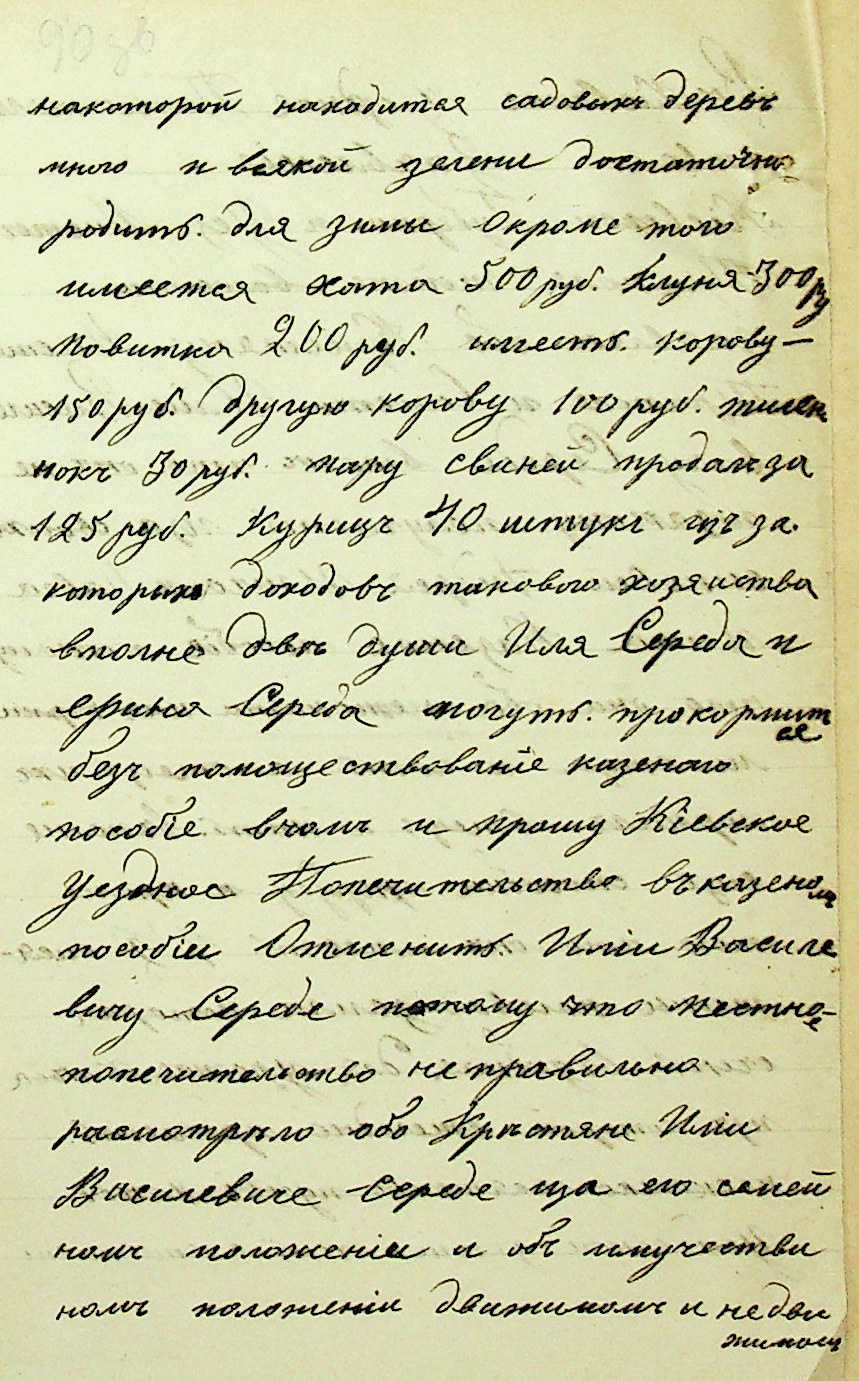 накоторой находится садовыхъ деревъ
много и всякой зелени достаточно
родитъ. для зимы Окроме того
имеется хата 500 руб. Клуня 300 ру
Повитка 200 руб. имеетъ. корову —
150 руб. другую корову 100 руб. тилен
нокъ 30 руб. пару свиней продалъ за
125 руб. Курицъ 40 штукъ изъ за.
которыхъ доходовъ такового хозяиства
вполне две души Иля Середа и
Ерина Середа могутъ. прокормит
ся
безъ помоществованіе казенаго
пособіе вчомъ и прошу Кіевское
Уездное Попечительство въ казеномъ
пособіи Отменитъ. Иліи Василе
вичу Середе потому что местно-
е
попечительство не правильно
расмотрѣло обо Крѣстяне Иліи
Василевиче Середе ща его семей
номъ положеніи и объ имучестви
номъ положеніи движимомъ и недви
жимомъ